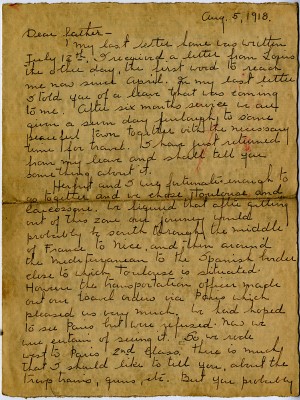 Aug. 5, 1918.
Dear Father -
My last letter home was written
July 12th. I received a letter from Louis
the other day, the first word to reach
me now since April. In my last letter
I told you of a leave that was coming
to me. After six months service we are
given a seven day furlough to some
peaceful town together with the necessary
time for travel. I have just returned
from my leave and shall tell you
something about it.
Herbert and I were fortunate enough to
go together and we chose Toulouse and
Carcassone. We figured that after getting
out of this zone our journey would
probably be south through the middle
of France to Nice, and then around
the Mediterranean to the Spanish border
close to which Toulouse is situated.
However the transportation officer made
out our travel orders via Paris which
pleased us very much. We had hoped
to see Paris but were refused. Now we
were certain of seeing it. So we rode
west to Paris 2nd Class. There is much
that I should like to tell you, about the
troop trains, guns, etc. But you probably